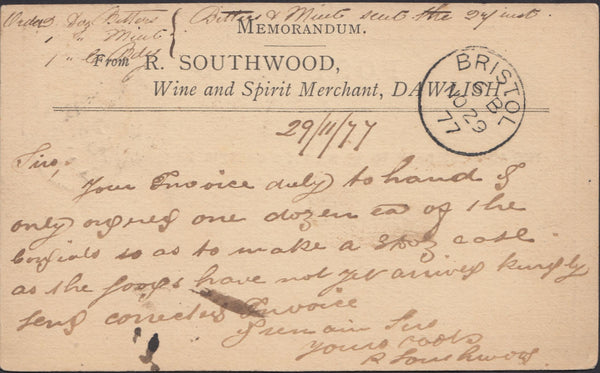 Order 3 Doz Bitters { Bitters & Mint sent the 27 inst.
1 " Mint
1 "
MEMORANDUM.
From R. SOUTHWOOD,
Wine and Spirit Merchant, DAWLISH.
BRISTOL
B
NO 29
77
29/11/77
Sirs,
Your Invoice duly to hand I
only ordered one dozen ea of the
Cordials so as to make a 3 Doz case.
as the goods have not yet arrived kindly
send corrected Invoice
I remain Sirs
yours
R Southwood